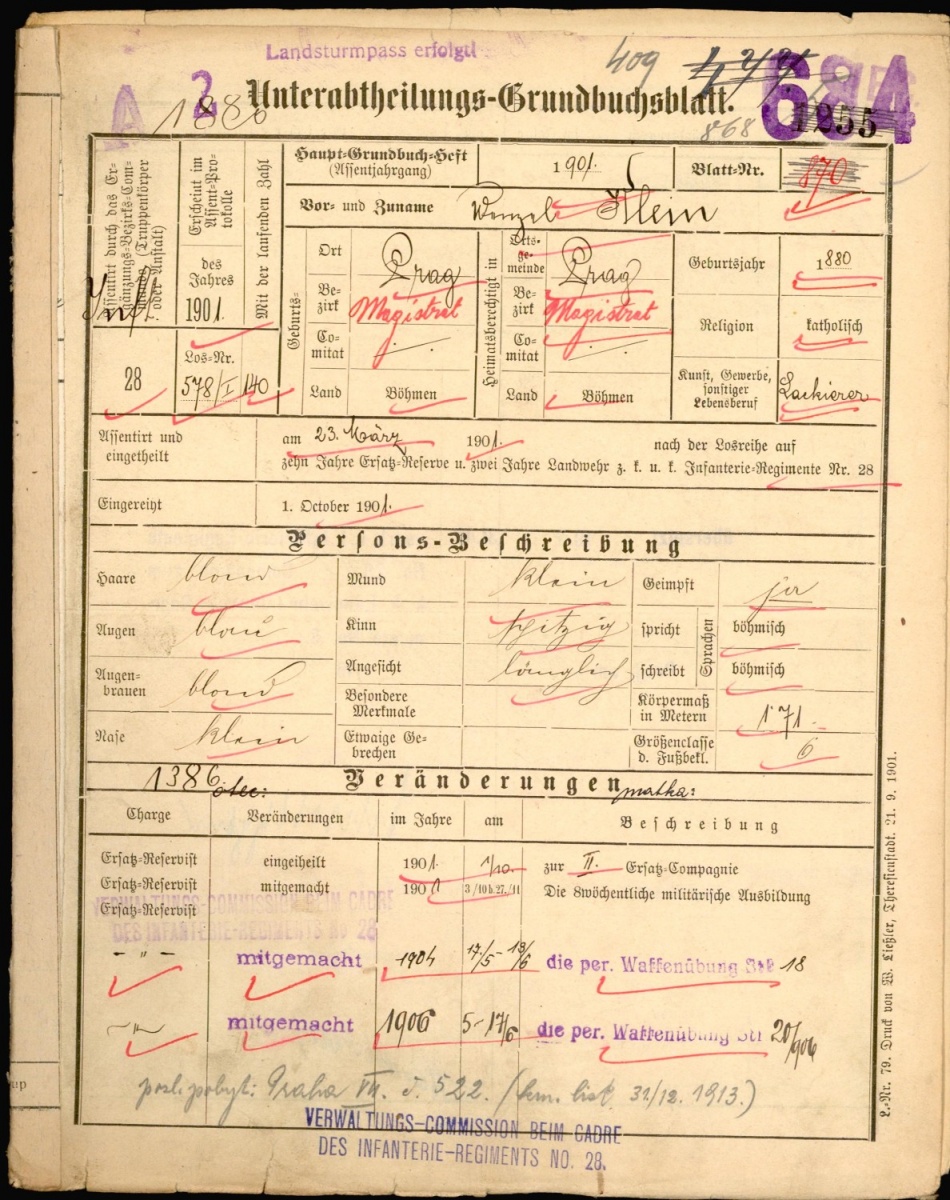 Landsturmpass erfolgt!
409
A 2 684
Unterabtheilungs-Grundbuchsblatt.
1880 868 1255
Assentirt durch das Ergänzungs-Bezirks-Commando (Truppenkörper oder Anstalt)
Inft.
28
Erscheint im Assent-Protokolle
des Jahres
1901
Mit der laufenden Zahl
Los-Nr.
578/I 140
Haupt-Grundbuch-Heft
(Assentjahrgang)
1901.
Blatt-Nr.
870
Vor- und Zuname Wenzel Klein
Geburts-
Ort Prag
Bezirk Magistrat
Comitat
Land Böhmen
Heimatsberechtigt in
Ortsgemeinde Prag
Bezirk Magistrat
Comitat
Land Böhmen
Geburtsjahr 1880
Religion katholisch
Kunst, Gewerbe, sonstiger Lebensberuf Lackierer
Assentirt und eingetheilt
am 23. März 1901. nach der Losreihe auf
zehn Jahre Ersatz-Reserve u. zwei Jahre Landwehr z. k. u. k. Infanterie-Regimente Nr. 28
Eingereiht 1. October 1901.
Persons-Beschreibung
Haare blond Mund klein Geimpft ja
Augen blau Kinn spitzig spricht Sprachen böhmisch
Augenbrauen blond Angesicht länglich schreibt böhmisch
Besondere Merkmale Körpermaß in Metern 1·71
Nase klein Etwaige Gebrechen Größenclasse d. Fußbekl. 6
1386. otec: Veränderungen matka:
Charge Veränderungen im Jahre am Beschreibung
Ersatz-Reservist eingetheilt 1901. 1/10. zur II. Ersatz-Compagnie
Ersatz-Reservist mitgemacht 1901 3/10 b. 27./11 Die 8wöchentliche militärische Ausbildung
Ersatz-Reservist
VERWALTUNGS-COMMISSION BEIM CADRE
DES INFANTERIE-REGIMENTS NO 28
- " - mitgemacht 1904 17/5 - 13/6 die per. Waffenübung 18
- " - mitgemacht 1906 5-17/6 die per. Waffenübung 20/906
posl. pobyt: Praha VII. č. 522. (km. list 31/12. 1913.)
VERWALTUNGS-COMMISSION BEIM CADRE
DES INFANTERIE-REGIMENTS NO. 28.
L.-Nr. 79. Druck von W. Ließler, Theresienstadt. 21. 9. 1901.
up